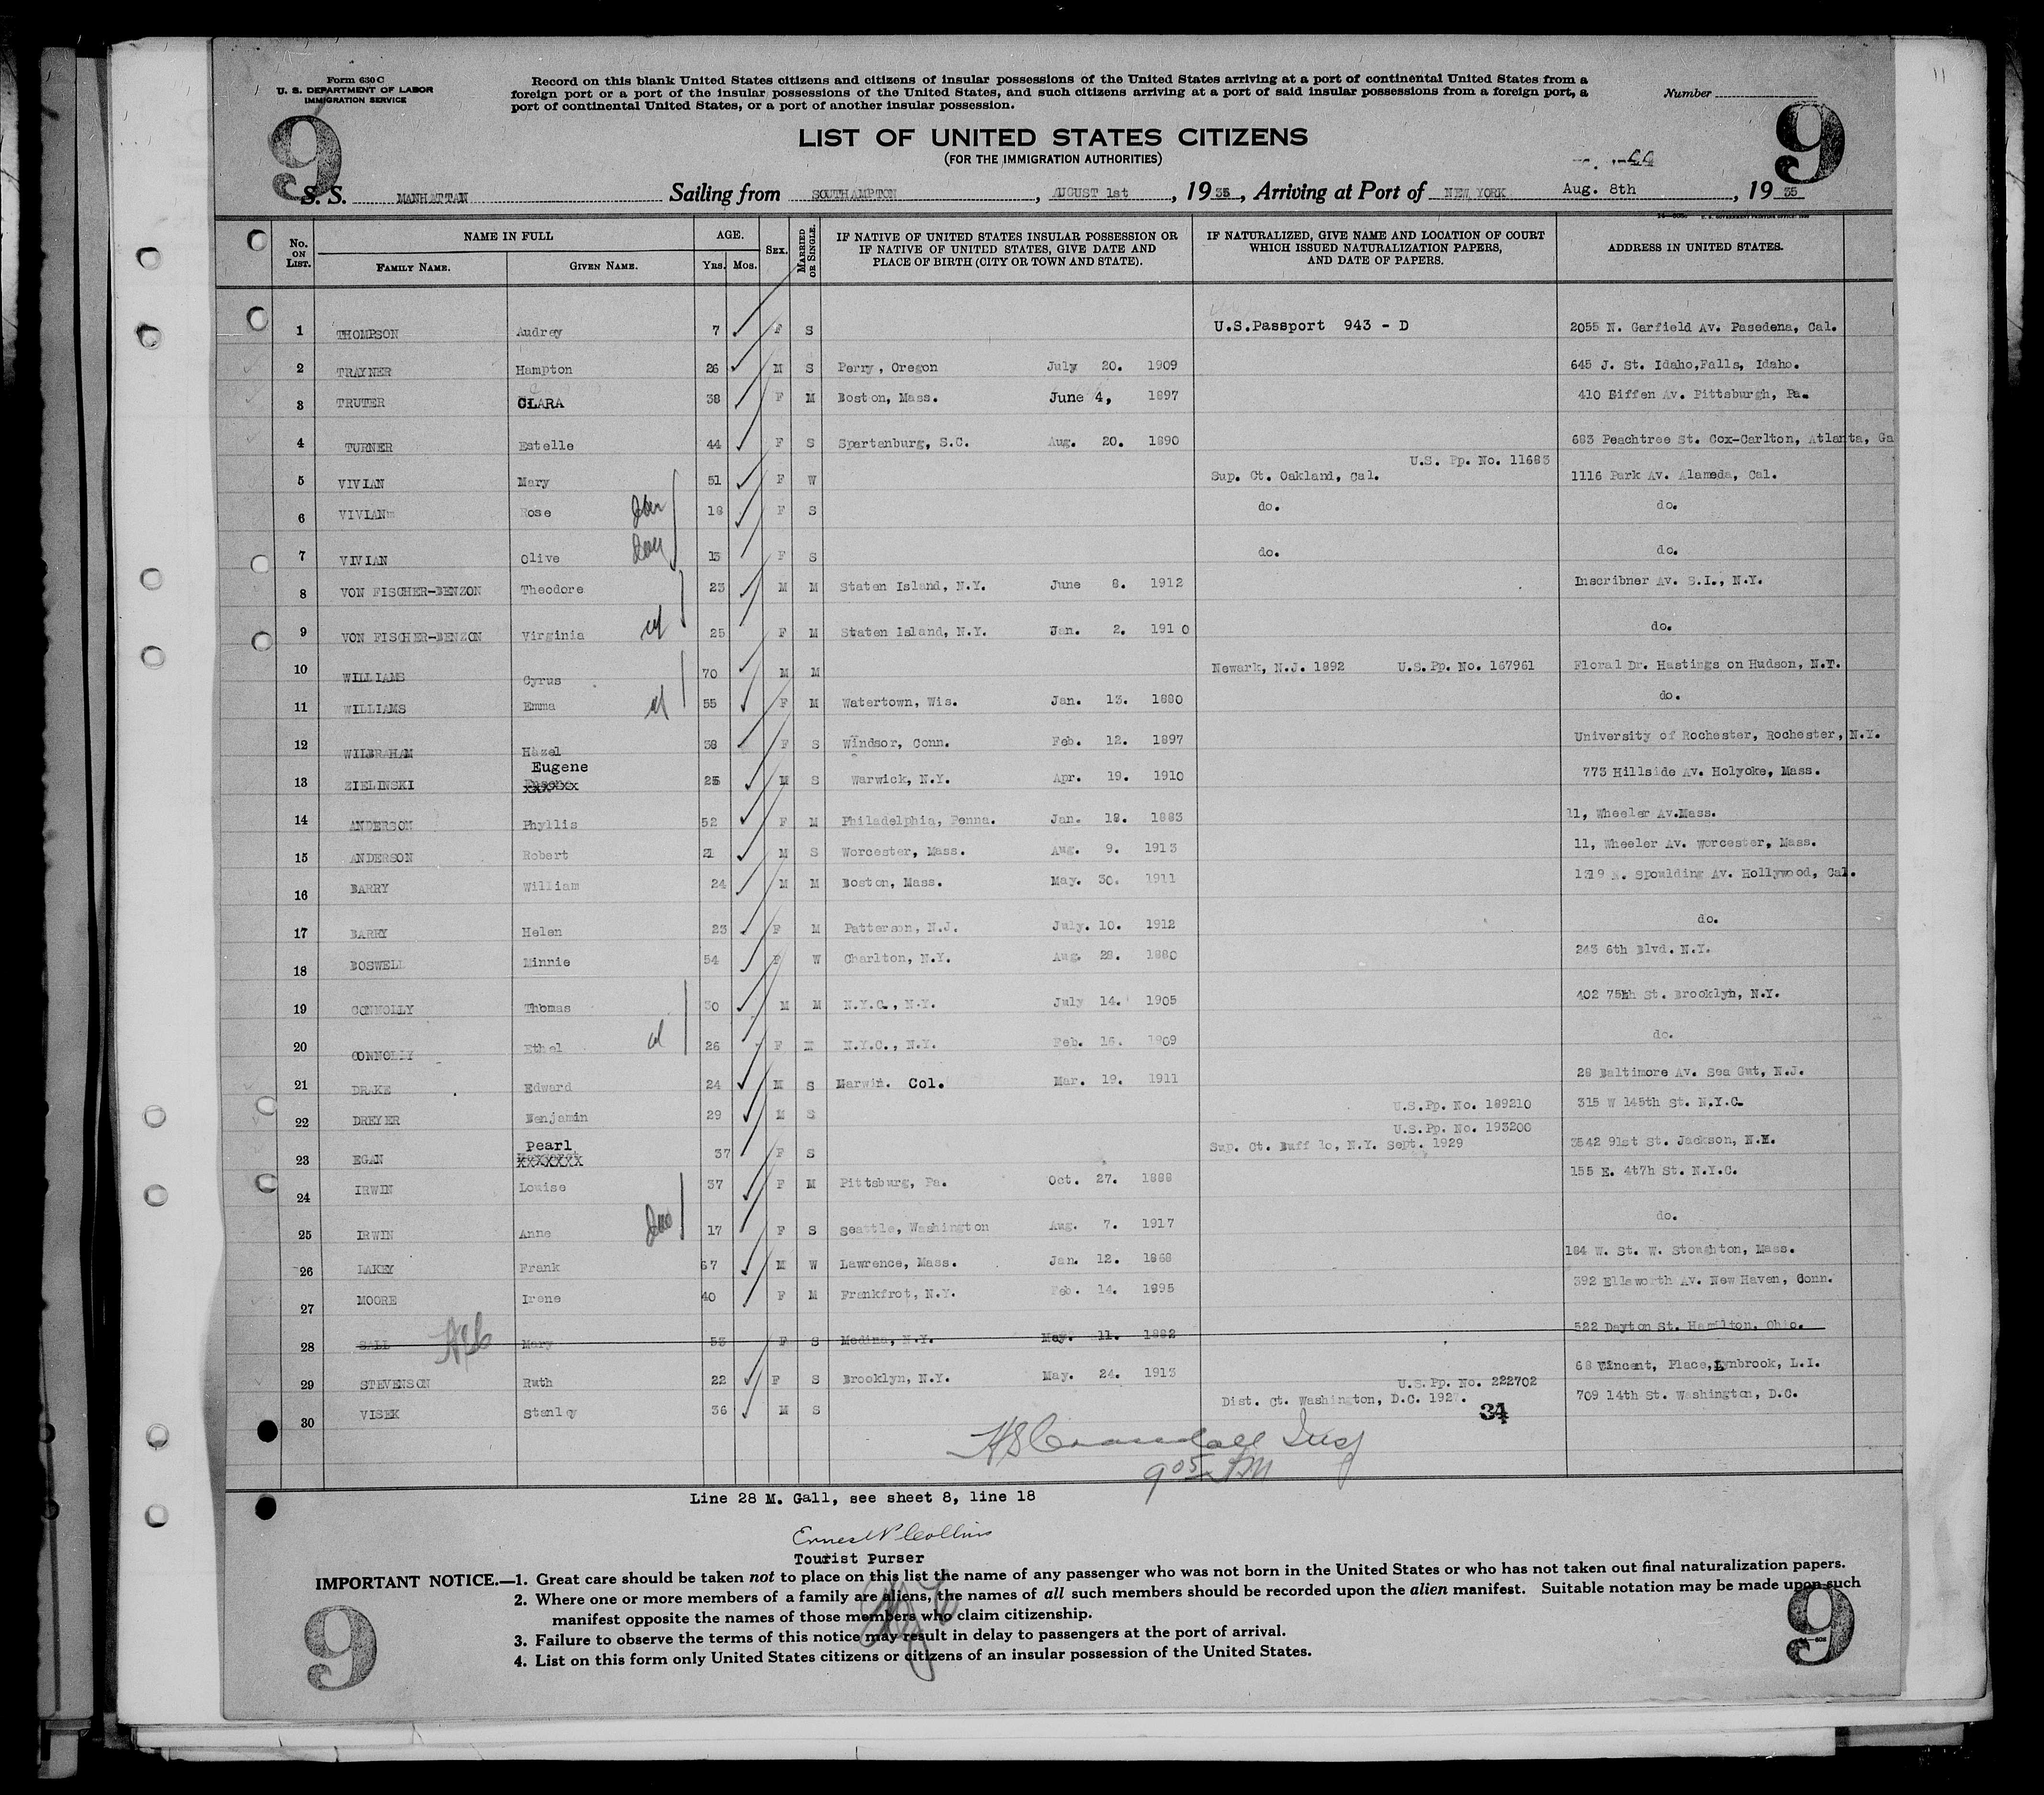 Form 630 C
U. S. DEPARTMENT OF LABOR
IMMIGRATION SERVICE
Record on this blank United States citizens and citizens of insular possessions of the United States arriving at a port of continental United States from a
foreign port or a port of the insular possessions of the United States, and such citizens arriving at a port of said insular possessions from a foreign port, a
port of continental United States, or a port of another insular possession.
Number
11
9
9
LIST OF UNITED STATES CITIZENS
(FOR THE IMMIGRATION AUTHORITIES)
S. S. MANHATTAN Sailing from SOUTHAMPTON, AUGUST 1st, 19 35, Arriving at Port of NEW YORK Aug. 8th, 19 35
No. ON LIST. NAME IN FULL FAMILY NAME. GIVEN NAME. AGE. YRS. MOS. SEX. MARRIED OR SINGLE. IF NATIVE OF UNITED STATES INSULAR POSSESSION OR IF NATIVE OF UNITED STATES, GIVE DATE AND PLACE OF BIRTH (CITY OR TOWN AND STATE). IF NATURALIZED, GIVE NAME AND LOCATION OF COURT WHICH ISSUED NATURALIZATION PAPERS, AND DATE OF PAPERS. ADDRESS IN UNITED STATES.
1 THOMPSON Audrey 7 F S U.S.Passport 943 - D 2055 N. Garfield Av. Pasedena, Cal.
2 TRAYNER Hampton 26 M S Perry, Oregon July 20. 1909 645 J. St. Idaho,Falls, Idaho.
3 TRUTER CLARA 38 F M Boston, Mass. June 4, 1897 410 Giffen Av. Pittsburgh, Pa.
4 TURNER Estelle 44 F S Spartanburg, S.C. Aug. 20. 1890 683 Peachtree St. Cox-Carlton, Atlanta, Ga
U.S. Pp. No. 11683
5 VIVIAN Mary 51 F W Sup. Ct. Oakland, Cal. 1116 Park Av. Alameda, Cal.
6 VIVIAN Rose 18 F S do. do.
7 VIVIAN Olive 13 F S do. do.
8 VON FISCHER-BENZON Theodore 23 M M Staten Island, N.Y. June 8. 1912 Inscribner Av. S.I., N.Y.
9 VON FISCHER-BENZON Virginia 25 F M Staten Island, N.Y. Jan. 2. 1910 do.
10 WILLIAMS Cyrus 70 M M Newark, N.J. 1892 U.S.Pp. No. 167961 Floral Dr. Hastings on Hudson, N.Y.
11 WILLIAMS Emma 55 F M Watertown, Wis. Jan. 13. 1880 do.
12 WILBRAHAM Hazel 38 F S Windsor, Conn. Feb. 12. 1897 University of Rochester, Rochester, N.Y.
13 ZIELINSKI Eugene 25 M S Warwick, N.Y. Apr. 19. 1910 773 Hillside Av. Holyoke, Mass.
14 ANDERSON Phyllis 52 F M Philadelphia, Penna. Jan. 18. 1883 11, Wheeler Av.Mass.
15 ANDERSON Robert 21 M S Worcester, Mass. Aug. 9. 1913 11, Wheeler Av. Worcester, Mass.
16 BARRY William 24 M M Boston, Mass. May. 30. 1911 1319 N. Spoulding Av. Hollywood, Cal.
17 BARRY Helen 23 F M Patterson, N.J. July. 10. 1912 do.
18 BOSWELL Minnie 54 F W Charlton, N.Y. Aug. 28. 1880 243 6th Blvd. N.Y.
19 CONNOLLY Thomas 30 M M N.Y.C., N.Y. July 14. 1905 402 75th St. Brooklyn, N.Y.
20 CONNOLLY Ethel 26 F M N.Y.C., N.Y. Feb. 16. 1909 do.
21 DRAKE Edward 24 M S Marwin. Col. Mar. 19. 1911 28 Baltimore Av. Sea Gut, N.J.
22 DREYER Benjamin 29 M S U.S.Pp. No. 189210 315 W 145th St. N.Y.C.
U.S.Pp. No. 193200
23 EGAN Pearl 37 F S Sup. Ct. Buff lo, N.Y. Sept. 1929 3542 91st St. Jackson, N.H.
24 IRWIN Louise 37 F M Pittsburg, Pa. Oct. 27. 1888 155 E. 47th St. N.Y.C.
25 IRWIN Anne 17 F S Seattle, Washington Aug. 7. 1917 do.
26 LAKEY Frank 67 M W Lawrence, Mass. Jan. 12. 1868 184 W. St. W. Stoughton, Mass.
27 MOORE Irene 40 F M Frankfrot, N.Y. Feb. 14. 1895 392 Ellsworth Av. New Haven, Conn.
28 GALL Mary 53 F S Medina, N.Y. May. 11. 1882 522 Dayton St. Hamilton, Ohio.
29 STEVENSON Ruth 22 F S Brooklyn, N.Y. May. 24. 1913 68 Vincent, Place,Lynbrook, L.I.
U.S.Pp. No. 222702
30 VISEK Stanley 36 M S Dist. Ct. Washington, D.C. 1927. 709 14th St. Washington, D.C.
34
HS Crandall Insp
9 05 PM
Line 28 M. Gall, see sheet 8, line 18
Ernest N Collins
Tourist Purser
IMPORTANT NOTICE.—1. Great care should be taken not to place on this list the name of any passenger who was not born in the United States or who has not taken out final naturalization papers.
2. Where one or more members of a family are aliens, the names of all such members should be recorded upon the alien manifest. Suitable notation may be made upon such
manifest opposite the names of those members who claim citizenship.
3. Failure to observe the terms of this notice may result in delay to passengers at the port of arrival.
4. List on this form only United States citizens or citizens of an insular possession of the United States.
9
9